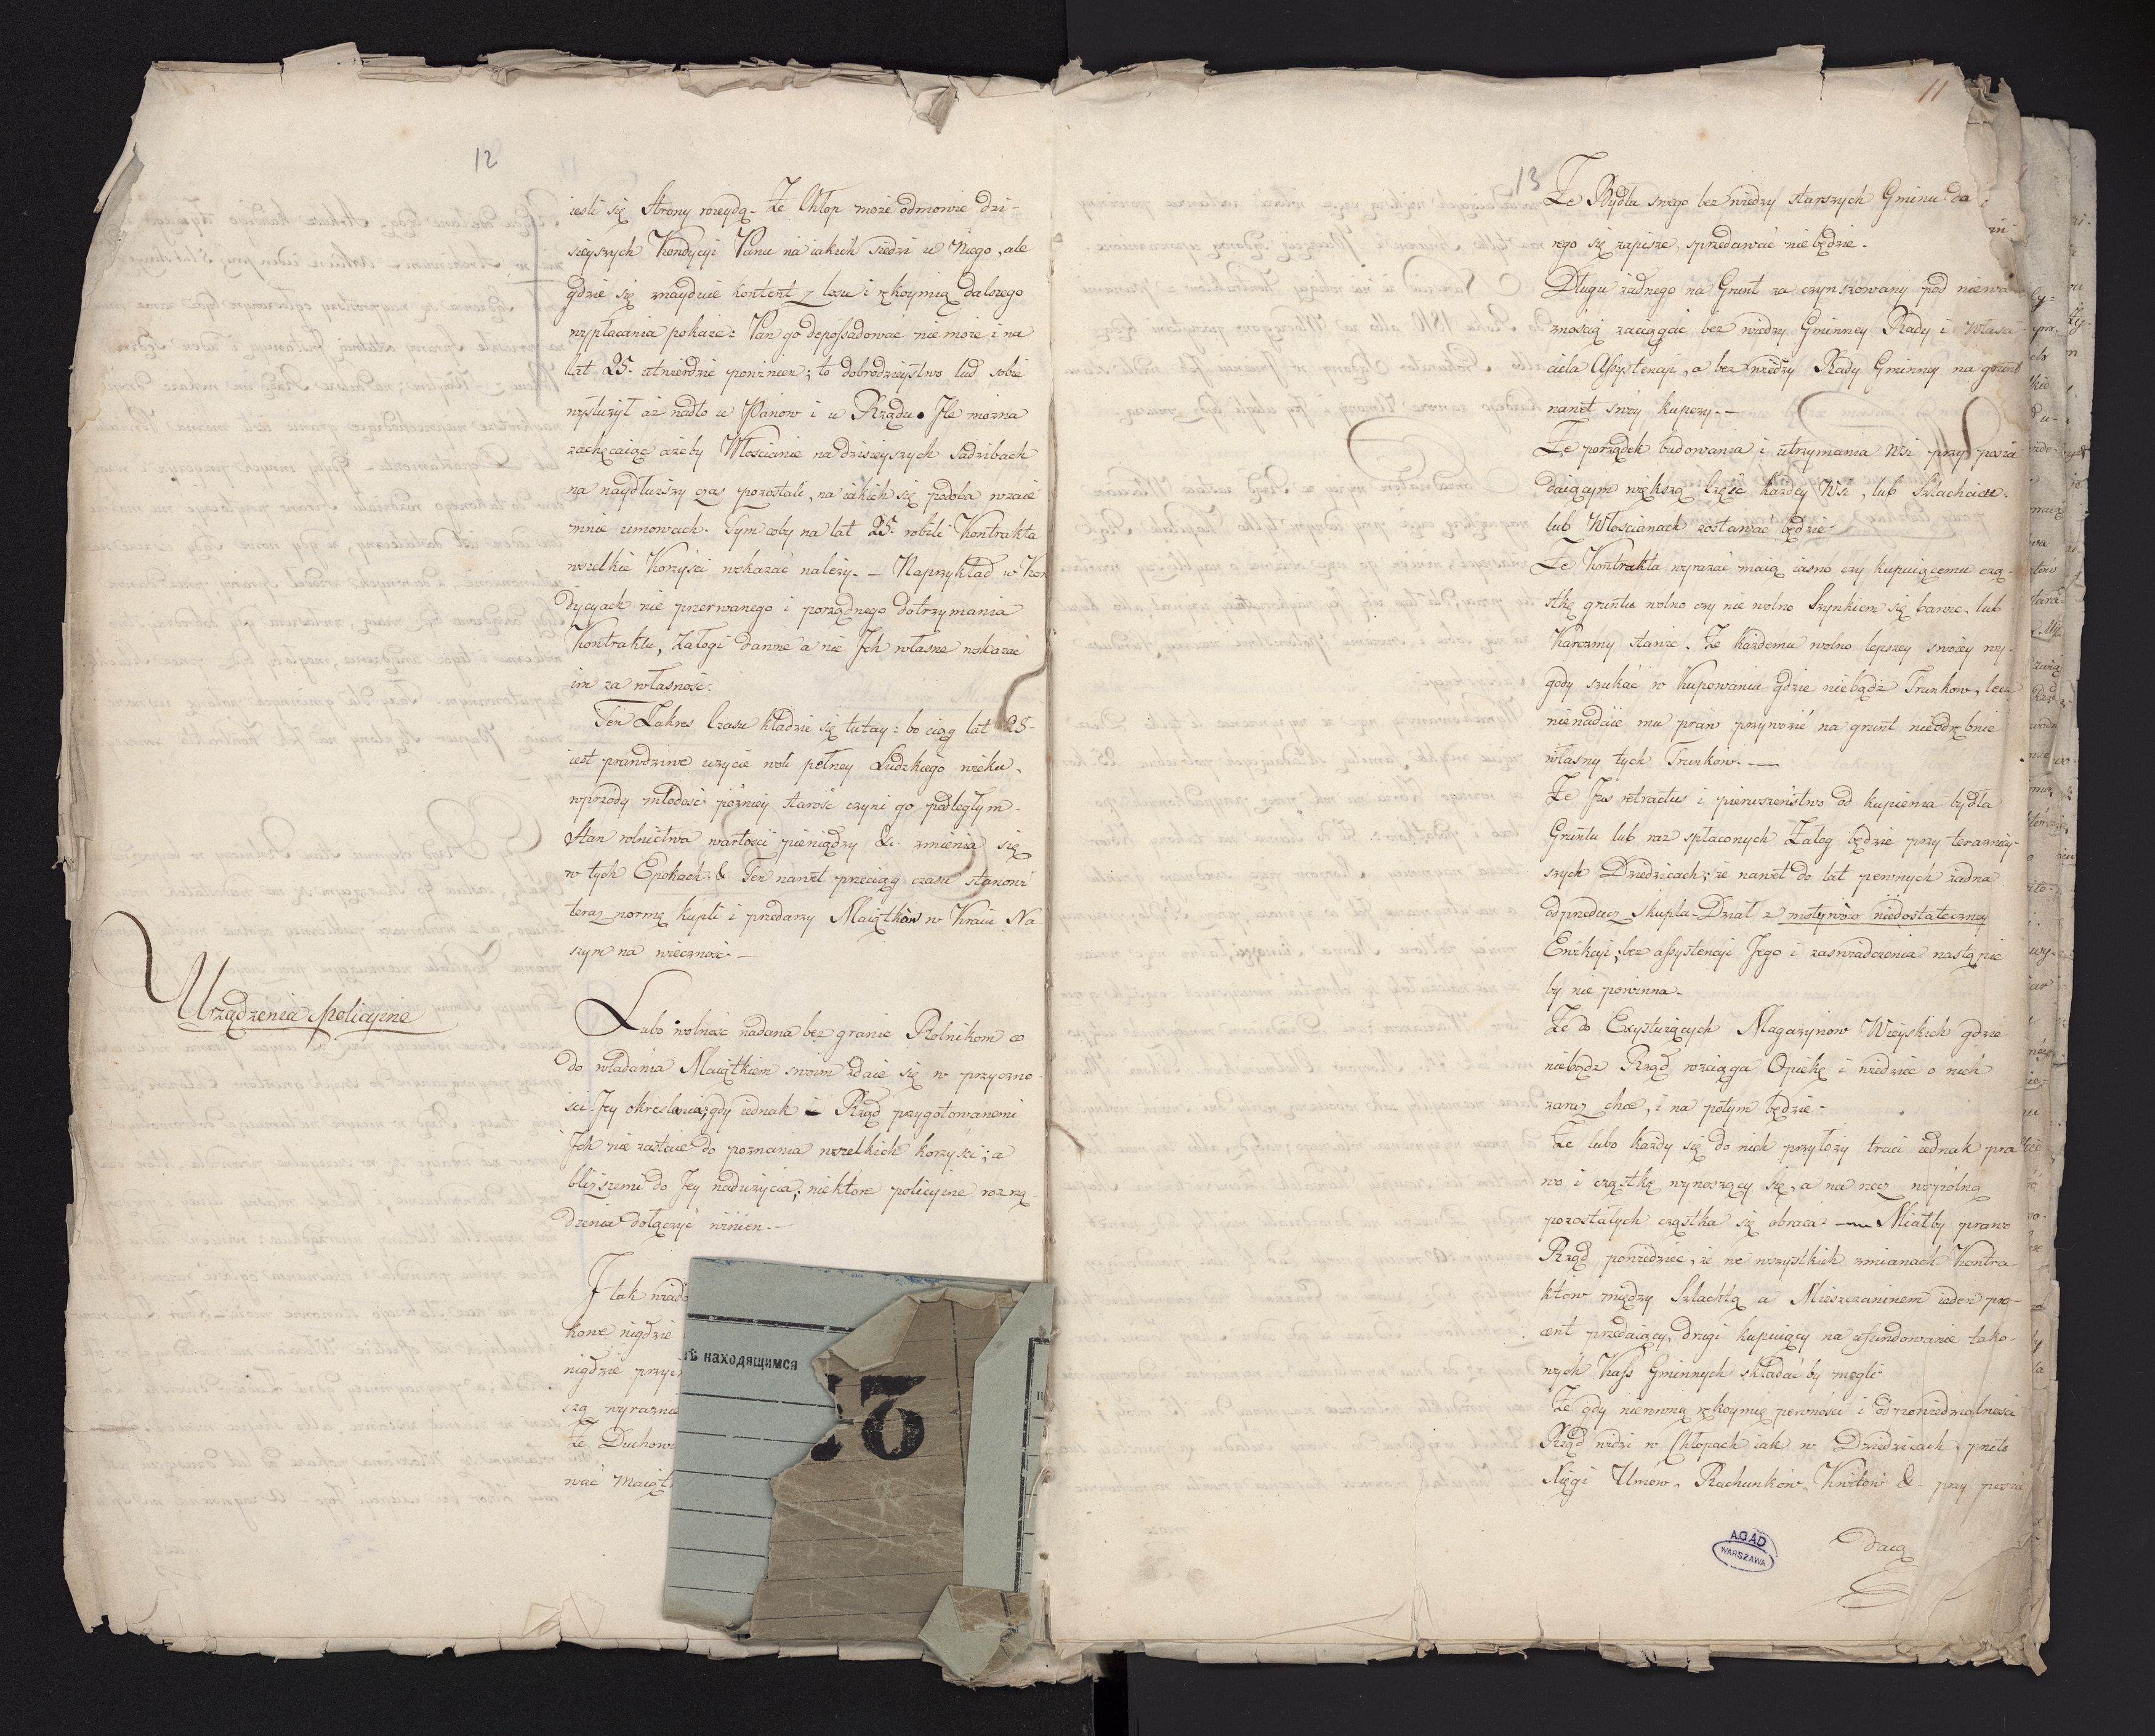 12
iesli się Strony rozeydą. Że Chłop może odmowić dzi-
sieyszych Kondycyi Panu na iakich siedzi u Niego, ale
gdzie się znayduie kontent z losu i rękoymią dalszego
wypłacania pokaże: Pan go depossadować nie może i na
lat 25. utwierdzić powinien; to dobrodzieystwo lud sobie
wysłużył aż nadto u Panow i u Rządu. Ile można
zachęcaiąc ażeby Włoscianie na dzisieyszych Sadzibach
na naydłuższy czas pozostali, na iakich się podoba wzaie
mnie umowach. Tym coby na lat 25. robili Kontrakta
wszelkie Korzyści wskazać należy. — Naprzykład w Kon
dycyach nie przerwanego i porządnego dotrzymania
Kontraktu, Załogi dawne a nie Ich własne wskazać
im za własność.
Ten Zakres Czasu kładzie się tutay: bo ciąg lat 25-
iest prawdziwe użycie woli pełney Ludzkiego wieku.
wprzody młodość pózniey starość czyni go podległym.
Stan rolnictwa wartości pieniędzy &. zmienia się
w tych Epokach & Ten nawet przeciąg czasu stanowi
teraz normę kupli i przedarzy Maiątków w Kraiu Na-
szym na wieczność. —
Urządzenia policyine
Lubo wolność nadana bez granic Rolnikom co
do władania Maiątkiem swoim zdaie się w przyczno-
ści Jey okreslania; gdy iednak i Rząd przygotowanemi
Ich nie zastaie do poznania wszelkich korzyści; a
bliższemi do Jey nadużycia; niektore policyine rozrzą-
dzenia dołączyć winien. —
I tak
kowe nigdzie
nigdzie
szą wyraznie
Że
wać
ѣ находящимся
11
13
Że Bydła swego bez wiedzy starszych Gminu do
rego się zapisze, sprzedawać nie będzie.
Długu żadnego na Grunt za czynszowany pod niewa
żnością zaciągać bez wiedzy Gminney Rady i Własci-
ciela Assystencyi, a bez wiedzy Rady Gminney na grunt
nawet swoy kupczy. —
Że porządek budowania i utrzymania Wsi przy posia
daiącym większą Część każdey Wsi, lub Szlachcicu.
lub Włoscianach zostawać będzie.
Że Kontrakta wyrażać maią iasno czy kupuiącemu czą-
stkę gruntu wolno czy nie wolno Szynkiem się bawić. lub
Karczmy stawić. Że każdemu wolno lepszey swoiey wy-
gody szukać w Kupowaniu gdzie niebądź Trunkow, lecz
nienadaie mu praw przywozić na grunt nieodrębnie
własny tych Trunkow. —
Że Jus retractus i pierwszeństwo od kupienia bydła
Gruntu lub raz spłaconych Załog będzie przy teraźniey-
szych Dziedzicach; że nawet do lat pewnych żadna
odprzedarz skupla-Dział z motywów niedostateczney
Ewikcyi, bez assystencyi Jego i zaswiadczenia nastąpić
by nie powinna.
Że do Exystuiących Magazynow Wieyskich gdzie
niebądź Rząd rozciąga Opiekę i wiedzieć o nich
zaraz chce, i na potym będzie.
Że lubo każdy się do nich przyłoży traci iednak pra
wo i cząstkę wynoszący się, a na rzecz wspólną
pozostałych cząstka się obraca — Miałby prawo
Rząd powiedzieć, że we wszystkich zmianach Kontra-
ktow między Szlachtą a Mieszczaninem ieden pro-
cent przedaiący, drugi kupuiący na ufundowanie tako-
wych Kass Gminnych składać by mogli
Że gdy nierówną rękoymię pewności i odpowiedzialnosci
Rząd widzi w Chłopach iak w Dziedzicach, przeto
Xięgi Umów, Rachunków, Kwitow &. przy posia
daią
AGAD
WARSZAWA